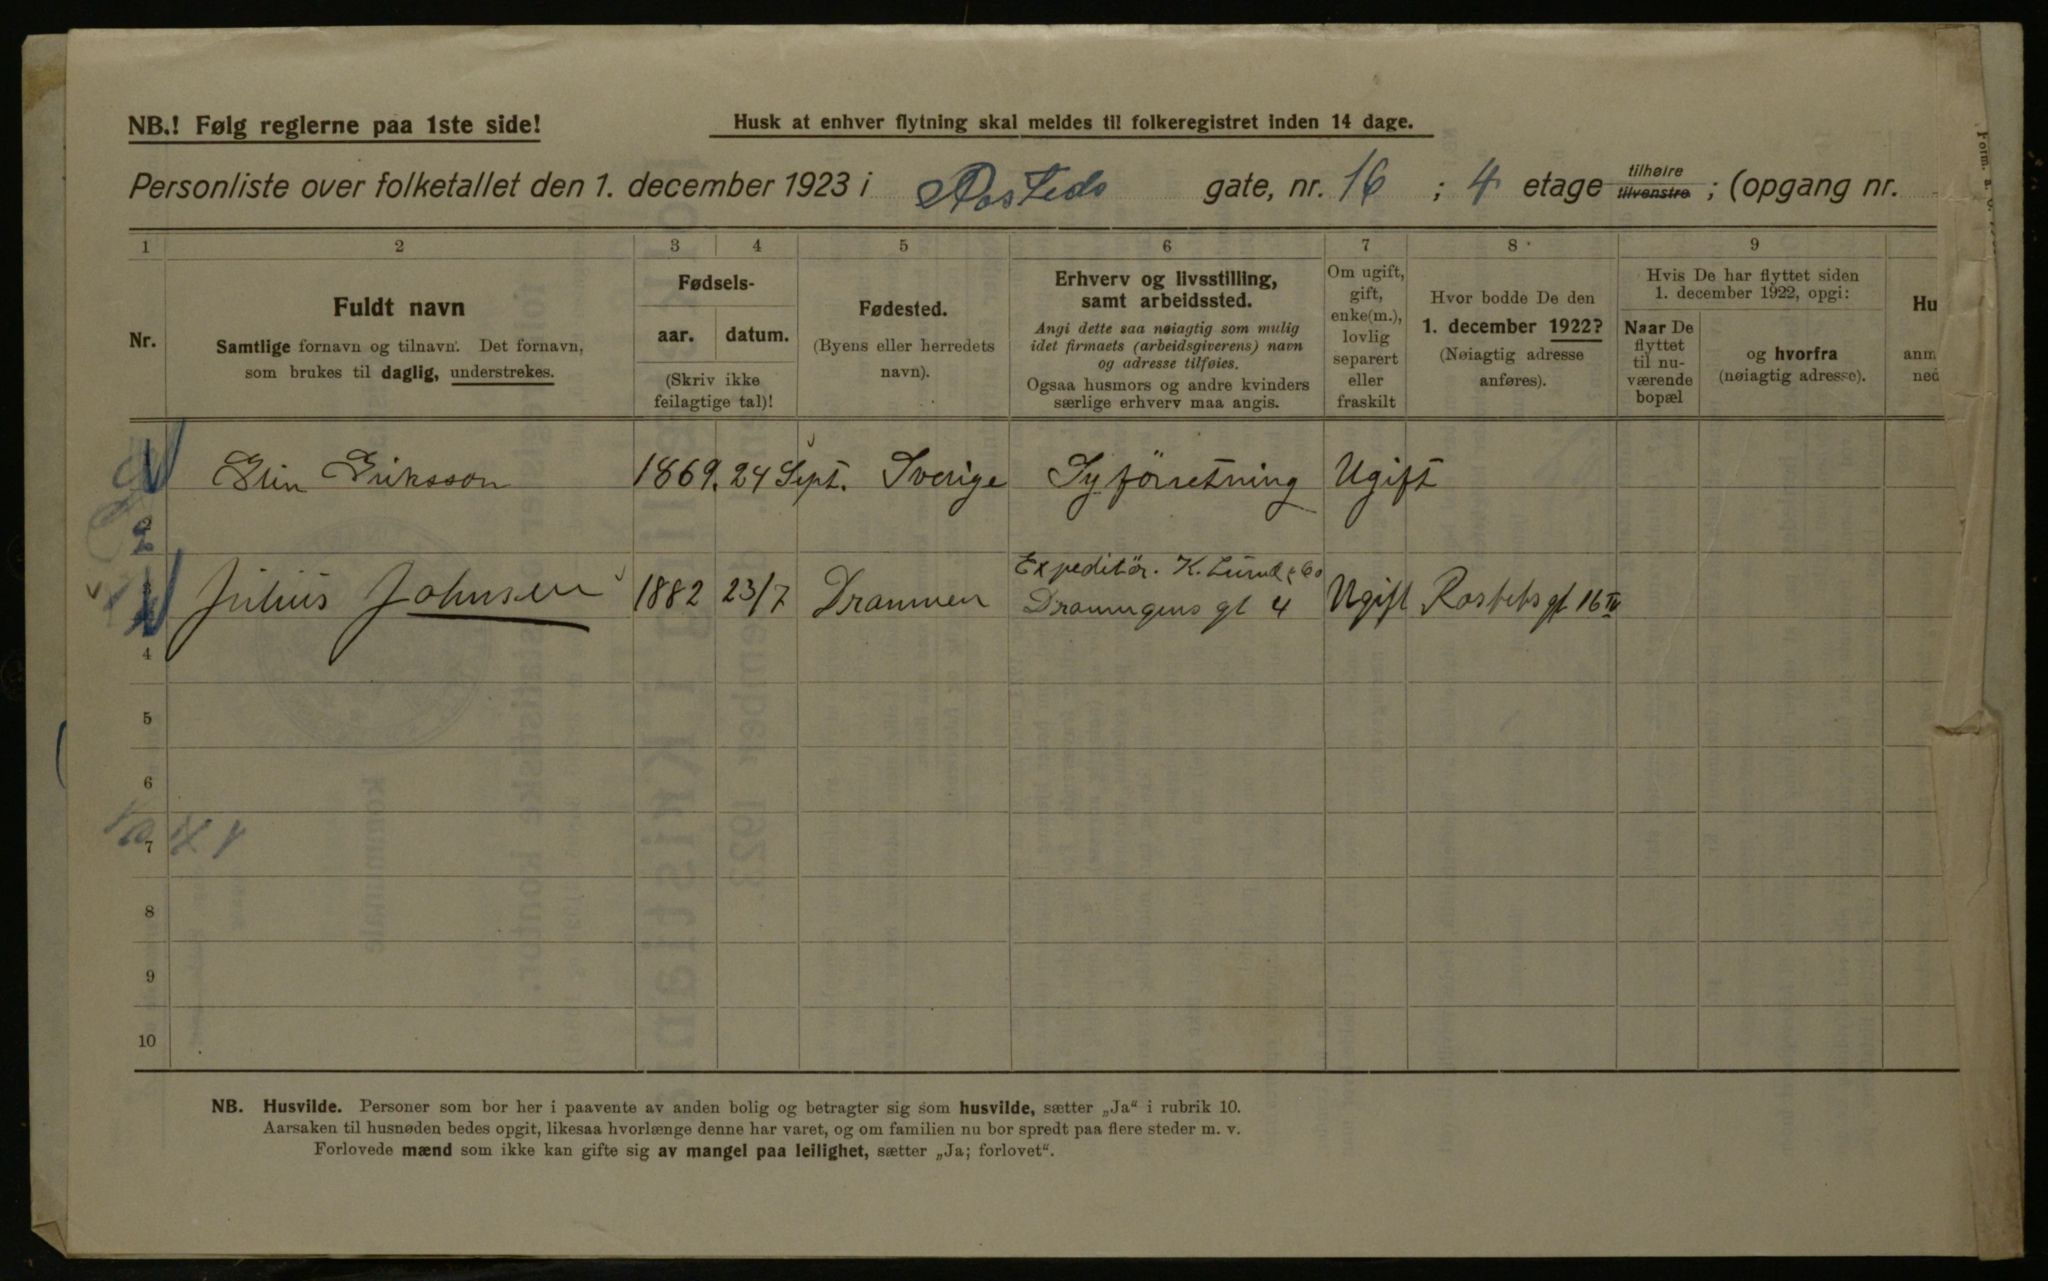 NB.! Følg reglerne paa 1ste side!
Husk at enhver flytning skal meldes til folkeregistret inden 14 dage.
Personliste over folketallet den 1. december 1923 i Rosteds gate, nr. 16 ; 4 etage tilhøire tilvenstre ; (opgang nr.
1 2 3 4 5 6 7 8 9
Nr.
Fuldt navn
Samtlige fornavn og tilnavn. Det fornavn,
som brukes til daglig, understrekes.
Fødsels-
aar. datum.
(Skriv ikke
feilagtige tal)!
Fødested.
(Byens eller herredets
navn).
Erhverv og livsstilling,
samt arbeidssted.
Angi dette saa nøiagtig som mulig
idet firmaets (arbeidsgiverens) navn
og adresse tilføies.
Ogsaa husmors og andre kvinders
særlige erhverv maa angis.
Om ugift,
gift,
enke(m.),
lovlig
separert
eller
fraskilt
Hvor bodde De den
1. december 1922?
(Nøiagtig adresse
anføres).
Hvis De har flyttet siden
1. december 1922, opgi:
Naar De
flyttet
til nu-
værende
bopæl
og hvorfra
(nøiagtig adresse).
Hu
anm
ned
1 Elin Eriksson 1869. 24 Sept. Sverige Syförretning Ugift
2
Expeditör. K. Lund & Co
Julius Johnsen 1882 23/7 Drammen Dronnigens gt 4 Ugift Rostets gt 16 IV
4
5
6
7
8
9
10
NB. Husvilde. Personer som bor her i paavente av anden bolig og betragter sig som husvilde, sætter „Ja“ i rubrik 10.
Aarsaken til husnøden bedes opgit, likesaa hvorlænge denne har varet, og om familien nu bor spredt paa flere steder m. v.
Forlovede mænd som ikke kan gifte sig av mangel paa leilighet, sætter „Ja; forlovet“.
Form. a.